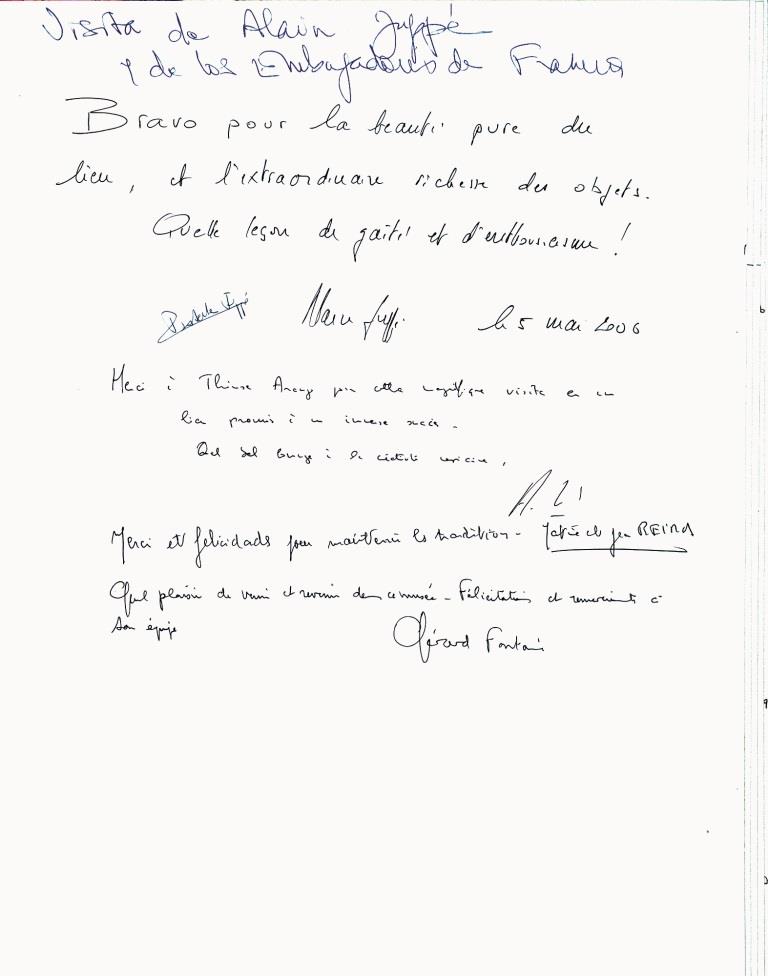 Visita de Alain Juppé
y de los Embajadores de Francia
Bravo pour la beauté pure du
lieu, et l'extraordinaire richesse des objets.
Quelle leçon de gaité et d'enthousiasme !
Juppé
Alain Juppé le 5 mai 2006
Merci à pour cette magnifique visite en un
lieu promis à un immense succès.
Quel bel à la
Merci et felicidads pour maintenir la tradition - REINA
Quel plaisir de venir et revenir dans ce musée - Félicitations et remerciements à
son équipe
Gérard Fontaine